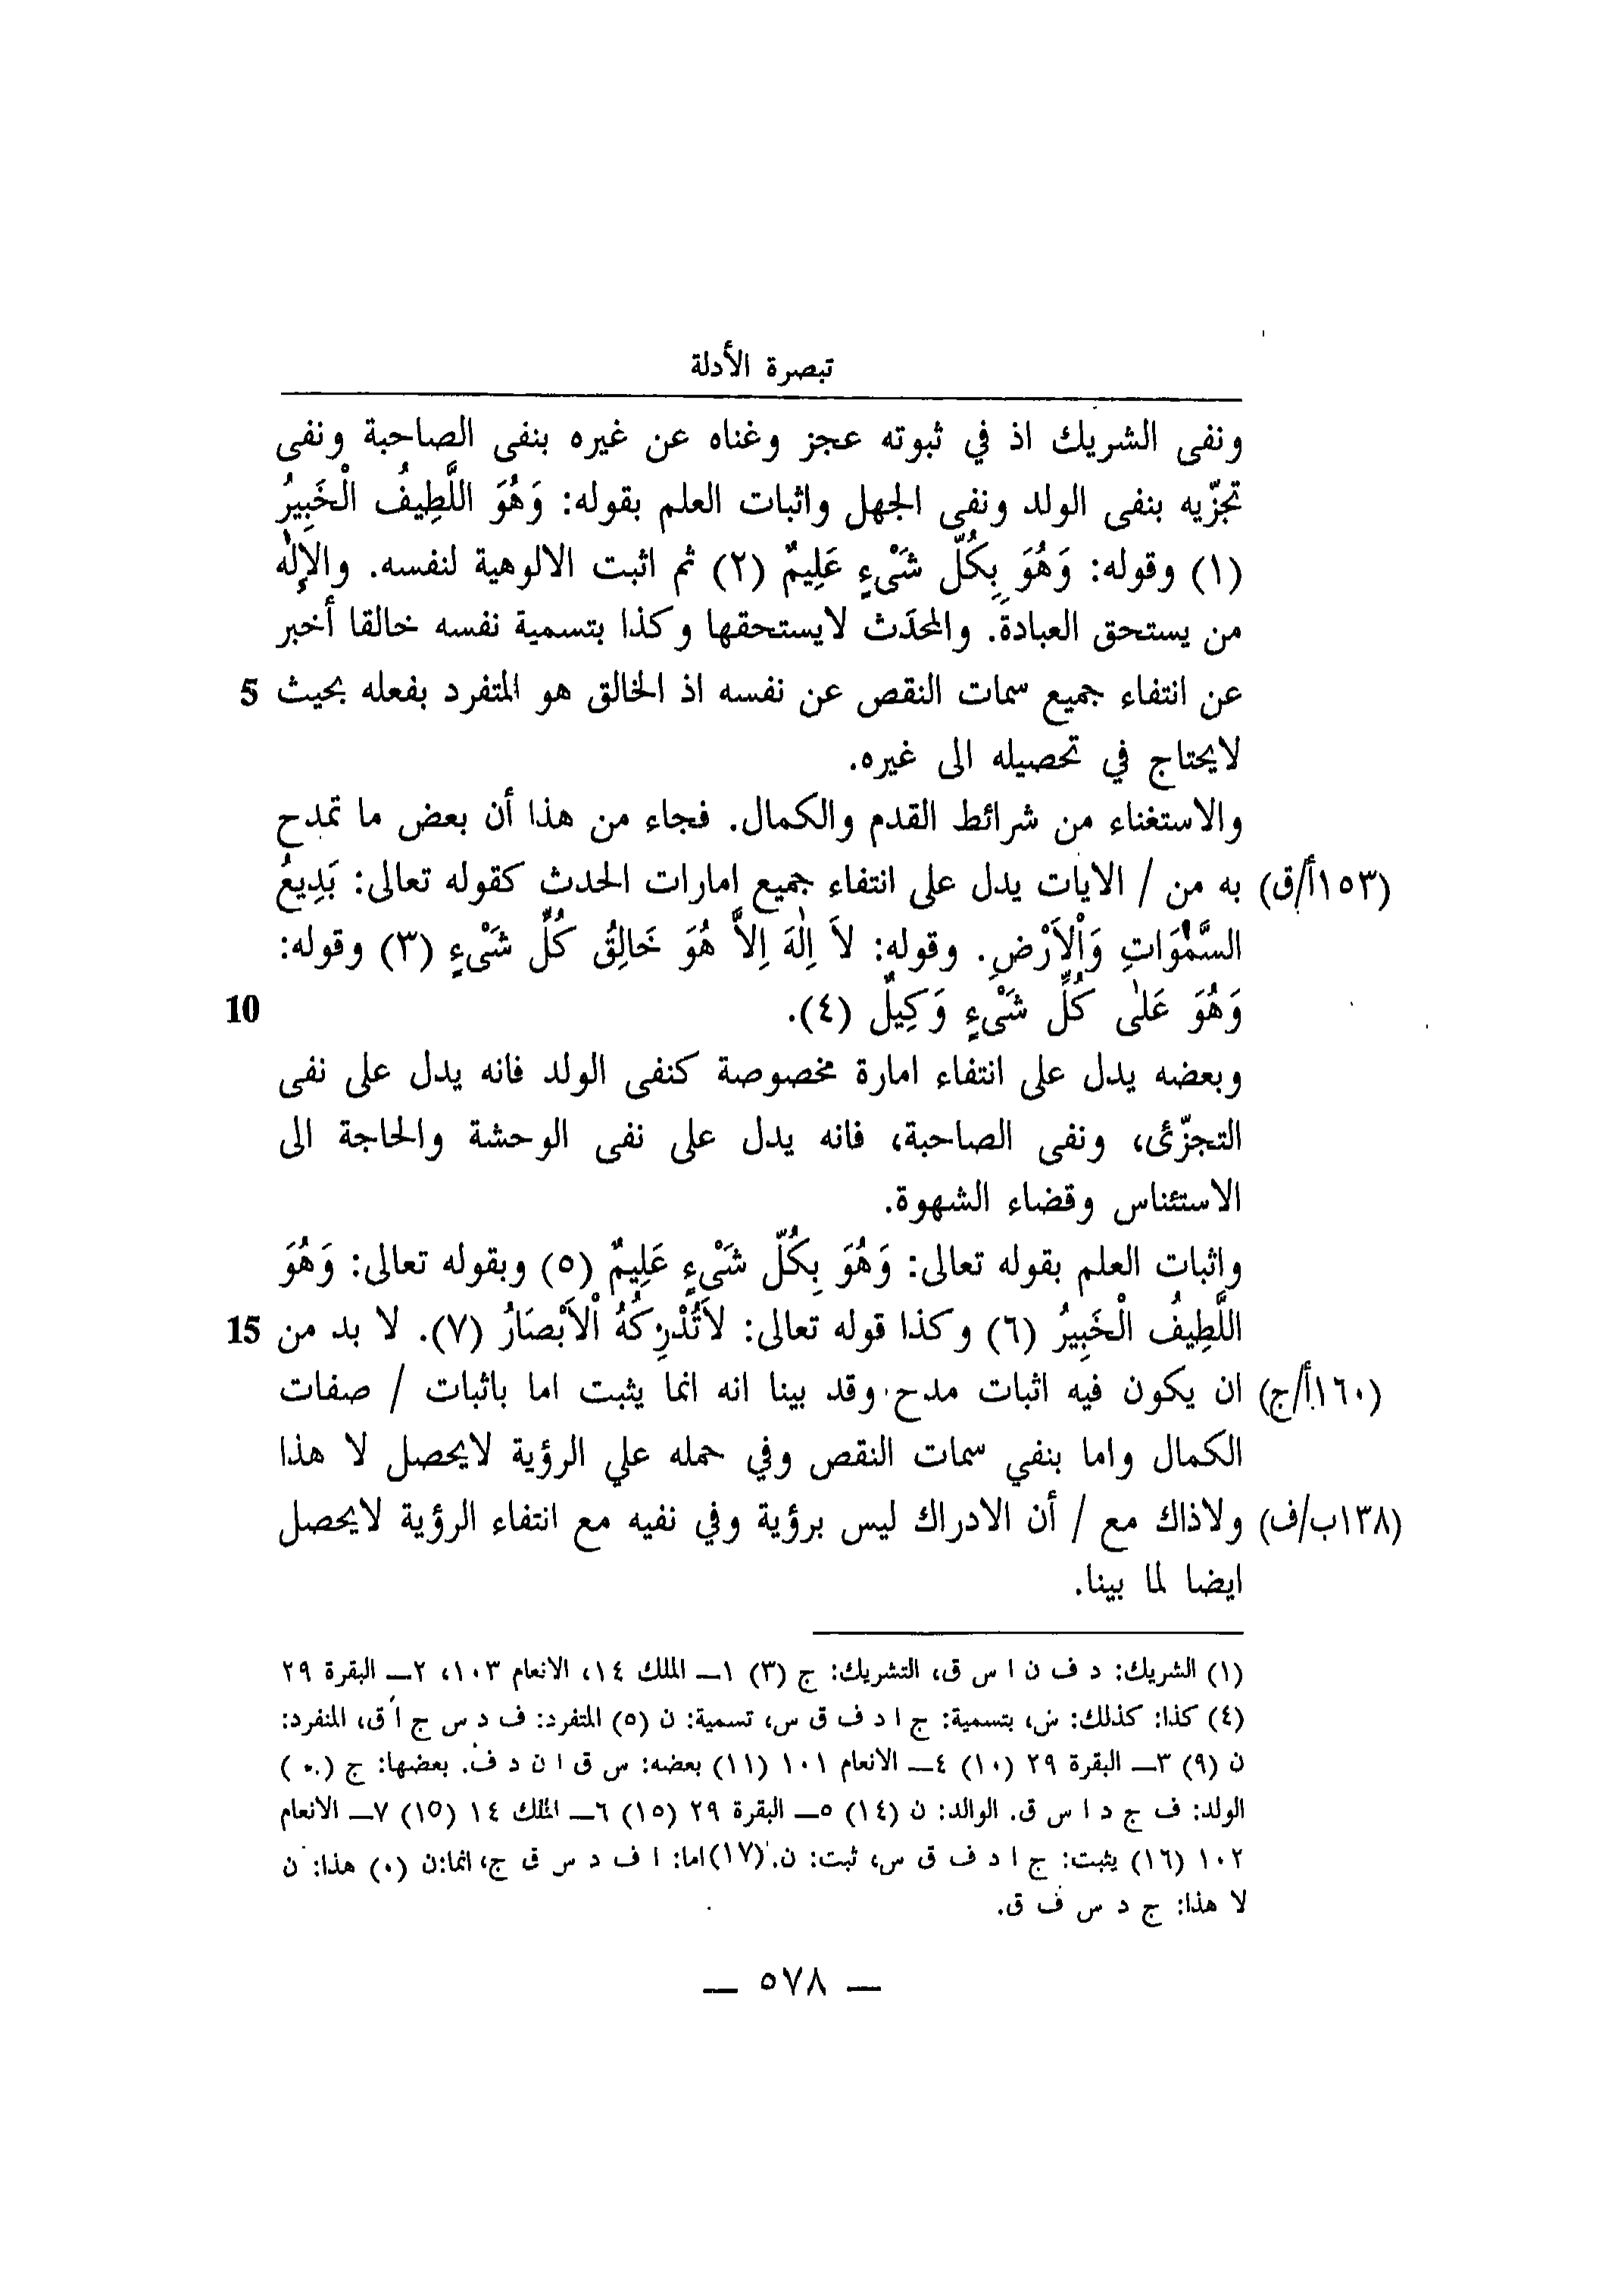 تبصرة الأدلة
ونفى الشريك اذ في ثبوته عجز وغناه عن غيره بنفى الصاحبة ونفى
تجزّيه بنفى الولد ونفى الجهل واثبات العلم بقوله: وَهُوَ اللَّطِيفُ الْخَبِيرُ
(١) وقوله: وَهُوَ بِكُلِّ شَىْءٍ عَلِيمٌ (٢) ثم اثبت الالوهية لنفسه. والإِلٰه
من يستحق العبادة. والمحدَث لايستحقها وكذا بتسمية نفسه خالقا أخبر
عن انتفاء جميع سمات النقص عن نفسه اذ الخالق هو المتفرد بفعله بحيث 5
لايحتاج في تحصيله الى غيره.
والاستغناء من شرائط القدم والكمال. فجاء من هذا أن بعض ما تمدح
(١٥٣أ/ق) به من / الايات يدل على انتفاء جميع امارات الحدث كقوله تعالى: بَدِيعُ
السَّمٰوَاتِ وَاْلاَرْضِ. وقوله: لاَ اِلٰهَ اِلاَّ هُوَ خَالِقُ كُلِّ شَىْءٍ (٣) وقوله:
وَهُوَ عَلٰى كُلِّ شَىْءٍ وَكِيلٌ (٤). 10
وبعضه يدل على انتفاء امارة مخصوصة كنفى الولد فانه يدل على نفى
التجزّئ، ونفى الصاحبة، فانه يدل على نفى الوحشة والحاجة الى
الاستئناس وقضاء الشهوة.
واثبات العلم بقوله تعالى: وَهُوَ بِكُلِّ شَىْءٍ عَلِيمٌ (٥) وبقوله تعالى: وَهُوَ
اللَّطِيفُ الْخَبِيرُ (٦) وكذا قوله تعالى: لاَتُدْرِكُهُ اْلاَبْصَارُ (٧). لا بد من 15
(١٦٠أ/ج) ان يكون فيه اثبات مدح وقد بينا انه انما يثبت اما باثبات / صفات
الكمال واما بنفي سمات النقص وفي حمله علي الرؤية لايحصل لا هذا
(١٣٨ب/ف) ولاذاك مع / أن الادراك ليس برؤية وفي نفيه مع انتفاء الرؤية لايحصل
ايضا لما بينا.
(١) الشريك: د ف ن ا س ق، التشريك: ج (٣) ١ــ الملك ١٤، الانعام ١٠٣، ٢ــ البقرة ٢٩
(٤) كذا: كذلك: س، بتسمية: ج ا د ف ق س، تسمية: ن (٥) المتفرد: ف د س ج أ ق، المنفرد:
ن (٩) ٣ــ البقرة ٢٩ (١٠) ٤ــ الانعام ١٠١ (١١) بعضه: س ق ا ن د ف. بعضها: ج (.)
الولد: ف ج د ا س ق. الوالد: ن (١٤) ٥ــ البقرة ٢٩ (١٥) ٦ــ الملك ١٤ (١٥) ٧ــ الانعام
١٠٢ (١٦) يثبت: ج ا د ف ق س، ثبت: ن. (١٧)اما: ا ف د س ق ج، انما:ن (٠) هذا: ن
لا هذا: ج د س ف ق.
ــ ٥٧٨ ــ